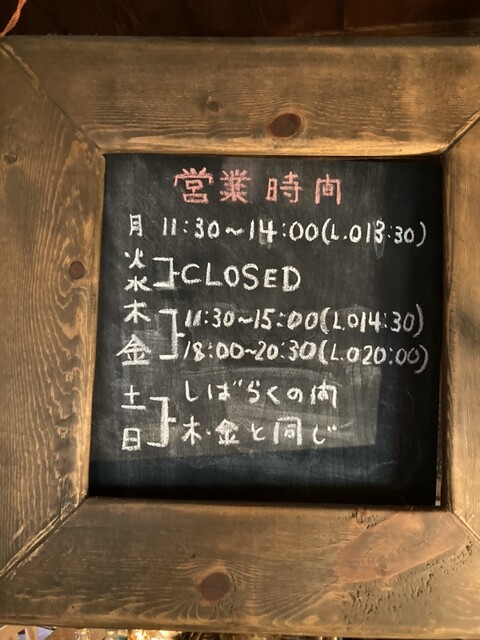 営業時間
月 11:30～14:00(L.O13:30)
火
水 CLOSED
木 11:30～15:00(L.O14:30)
金 18:00～20:30(L.O20:00)
土 しばらくの間
日 木・金と同じ